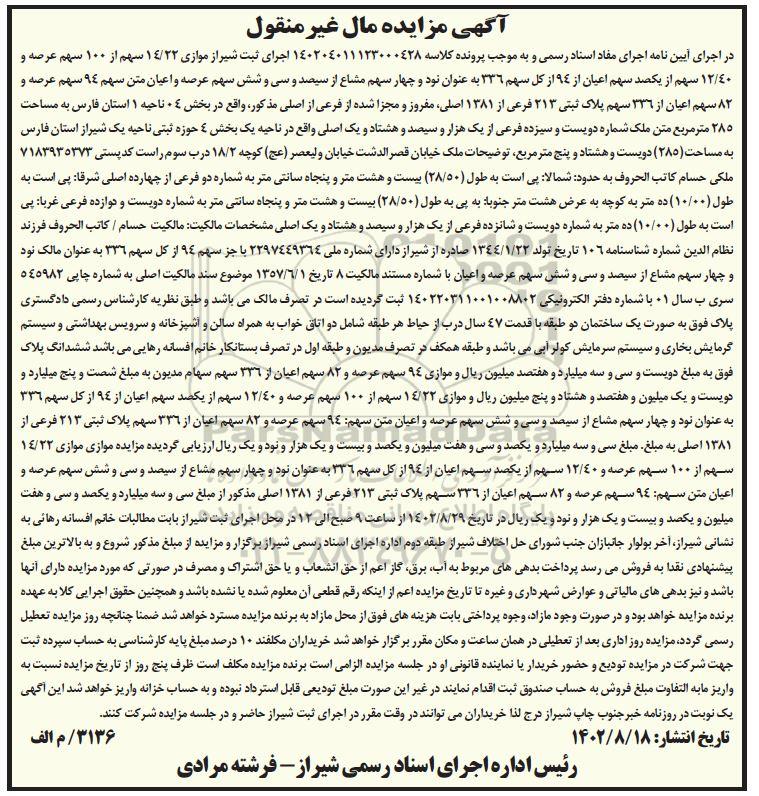 آگهی مزایده مال غیر منقول
در اجرای آیین نامه اجرای مفاد اسناد رسمی و به موجب پرونده کلاسه ۱۴۰۲۰۴۰۱۱۱۲۳۰۰۰۴۲۸ اجرای ثبت شیراز موازی ۱۴/۲۲ سهم از ۱۰۰ سهم عرصه و
۱۲/۴۰ سهم از یکصد سهم اعیان از ۹۴ از کل سهم ۳۳۶ به عنوان نود و چهار سهم مشاع از سیصد و سی و شش سهم عرصه و اعیان متن سهم ۹۴ سهم عرصه و
۸۲ سهم اعیان از ۳۳۶ سهم پلاک ثبتی ۲۱۳ فرعی از ۱۳۸۱ اصلی، مفروز و مجزا شده از فرعی از اصلی مذکور، واقع در بخش ۰۴ ناحیه ۱ استان فارس به مساحت
۲۸۵ مترمربع متن ملک شماره دویست و سیزده فرعی از یک هزار و سیصد و هشتاد و یک اصلی واقع در ناحیه یک بخش ۴ حوزه ثبتی ناحیه یک شیراز استان فارس
به مساحت (۲۸۵) دویست و هشتاد و پنج متر مربع، توضیحات ملک خیابان قصرالدشت خیابان ولیعصر (عج) کوچه ۱۸/۲ درب سوم راست کدپستی ۷۱۸۳۹۳۵۳۷۳
ملکی حسام کاتب الحروف به حدود: شمالا: پی است به طول (۲۸/۵۰) بیست و هشت متر و پنجاه سانتی متر به شماره دو فرعی از چهارده اصلی شرقا: پی است به
طول (۱۰/۰۰) ده متر به کوچه به عرض هشت متر جنوبا: به پی به طول (۲۸/۵۰) بیست و هشت متر و پنجاه سانتی متر به شماره دویست و دوازده فرعی غربا: پی
است به طول (۱۰/۰۰) ده متر به شماره دویست و شانزده فرعی از یک هزار و سیصد و هشتاد و یک اصلی مشخصات مالکیت: مالکیت حسام / کاتب الحروف فرزند
نظام الدین شماره شناسنامه ۱۰۶ تاریخ تولد ۱۳۴۴/۱/۲۲ صادره از شیراز دارای شماره ملی ۲۲۹۷۴۴۹۳۶۴ با جز سهم ۹۴ از کل سهم ۳۳۶ به عنوان مالک نود
و چهار سهم مشاع از سیصد و سی و شش سهم عرصه و اعیان با شماره مستند مالکیت ۸ تاریخ ۱۳۵۷/۶/۱ موضوع سند مالکیت اصلی به شماره چاپی ۵۴۵۹۸۲
سری ب سال ۰۱ با شماره دفتر الکترونیکی ۱۴۰۲۲۰۳۱۱۰۰۱۰۰۸۸۰۲ ثبت گردیده است در تصرف مالک می باشد و طبق نظریه کارشناس رسمی دادگستری
پلاک فوق به صورت یک ساختمان دو طبقه با قدمت ۴۷ سال درب از حیاط هر طبقه شامل دو اتاق خواب به همراه سالن و آشپزخانه و سرویس بهداشتی و سیستم
گرمایش بخاری و سیستم سرمایش کولر آبی می باشد و طبقه همکف در تصرف مدیون و طبقه اول در تصرف بستانکار خانم افسانه رهایی می باشد ششدانگ پلاک
فوق به مبلغ دویست و سی و سه میلیارد و هفتصد میلیون ریال و موازی ۹۴ سهم عرصه و ۸۲ سهم اعیان از ۳۳۶ سهم سهام مدیون به مبلغ شصت و پنج میلیارد و
دویست و یک میلیون و هفتصد و هشتاد و پنج میلیون ریال و موازی ۱۴/۲۲ سهم از ۱۰۰ سهم عرصه و ۱۲/۴۰ سهم از یکصد سهم اعیان از ۹۴ از کل سهم ۳۳۶
به عنوان نود و چهار سهم مشاع از سیصد و سی و شش سهم عرصه و اعیان متن سهم: ۹۴ سهم عرصه و ۸۲ سهم اعیان از ۳۳۶ سهم پلاک ثبتی ۲۱۳ فرعی از
۱۳۸۱ اصلی به مبلغ. مبلغ سی و سه میلیارد و یکصد و سی و هفت میلیون و یکصد و بیست و یک هزار و نود و یک ریال ارزیابی گردیده مزایده موازی موازی ۱۴/۲۲
سهم از ۱۰۰ سهم عرصه و ۱۲/۴۰ سهم از یکصد سهم اعیان از ۹۴ از کل سهم ۳۳۶ به عنوان نود و چهار سهم مشاع از سیصد و سی و شش سهم عرصه و
اعیان متن سهم: ۹۴ سهم عرصه و ۸۲ سهم اعیان از ۳۳۶ سهم پلاک ثبتی ۲۱۳ فرعی از ۱۳۸۱ اصلی مذکور از مبلغ سی و سه میلیارد و یکصد و سی و هفت
میلیون و یکصد و بیست و یک هزار و نود و یک ریال در تاریخ ۱۴۰۲/۸/۲۹ از ساعت ۹ صبح الی ۱۲ در محل اجرای ثبت شیراز بابت مطالبات خانم افسانه رهائی به
نشانی شیراز، آخر بولوار جانبازان جنب شورای حل اختلاف شیراز طبقه دوم اداره اجرای اسناد رسمی شیراز برگزار و مزایده از مبلغ مذکور شروع و به بالاترین مبلغ
پیشنهادی نقدا به فروش می رسد پرداخت بدهی های مربوط به آب، برق، گاز اعم از حق انشعاب و یا حق اشتراک و مصرف در صورتی که مورد مزایده دارای آنها
باشد و نیز بدهی های مالیاتی و عوارض شهرداری و غیره تا تاریخ مزایده اعم از اینکه رقم قطعی آن معلوم شده یا نشده باشد و همچنین حقوق اجرایی کلا به عهده
برنده مزایده خواهد بود و در صورت وجود مازاد، وجوه پرداختی بابت هزینه های فوق از محل مازاد به برنده مزایده مسترد خواهد شد ضمنا چنانچه روز مزایده تعطیل
رسمی گردد، مزایده روز اداری بعد از تعطیلی در همان ساعت و مکان مقرر برگزار خواهد شد خریداران مکلفند ۱۰ درصد مبلغ پایه کارشناسی به حساب سپرده ثبت
جهت شرکت در مزایده تودیع و حضور خریدار یا نماینده قانونی او در جلسه مزایده الزامی است برنده مزایده مکلف است ظرف پنج روز از تاریخ مزایده نسبت به
واریز مابه التفاوت مبلغ فروش به حساب صندوق ثبت اقدام نمایند در غیر این صورت مبلغ تودیعی قابل استرداد نبوده و به حساب خزانه واریز خواهد شد این آگهی
یک نوبت در روزنامه خبرجنوب چاپ شیراز درج لذا خریداران می توانند در وقت مقرر در اجرای ثبت شیراز حاضر و در جلسه مزایده شرکت کنند.
تاریخ انتشار: ۱۴۰۲/۸/۱۸ ۳۱۳۶/ م الف
رئیس اداره اجرای اسناد رسمی شیراز – فرشته مرادی
ParsNamadData
۰۲۱-۸۸۳۴۹۶۷۰-۵